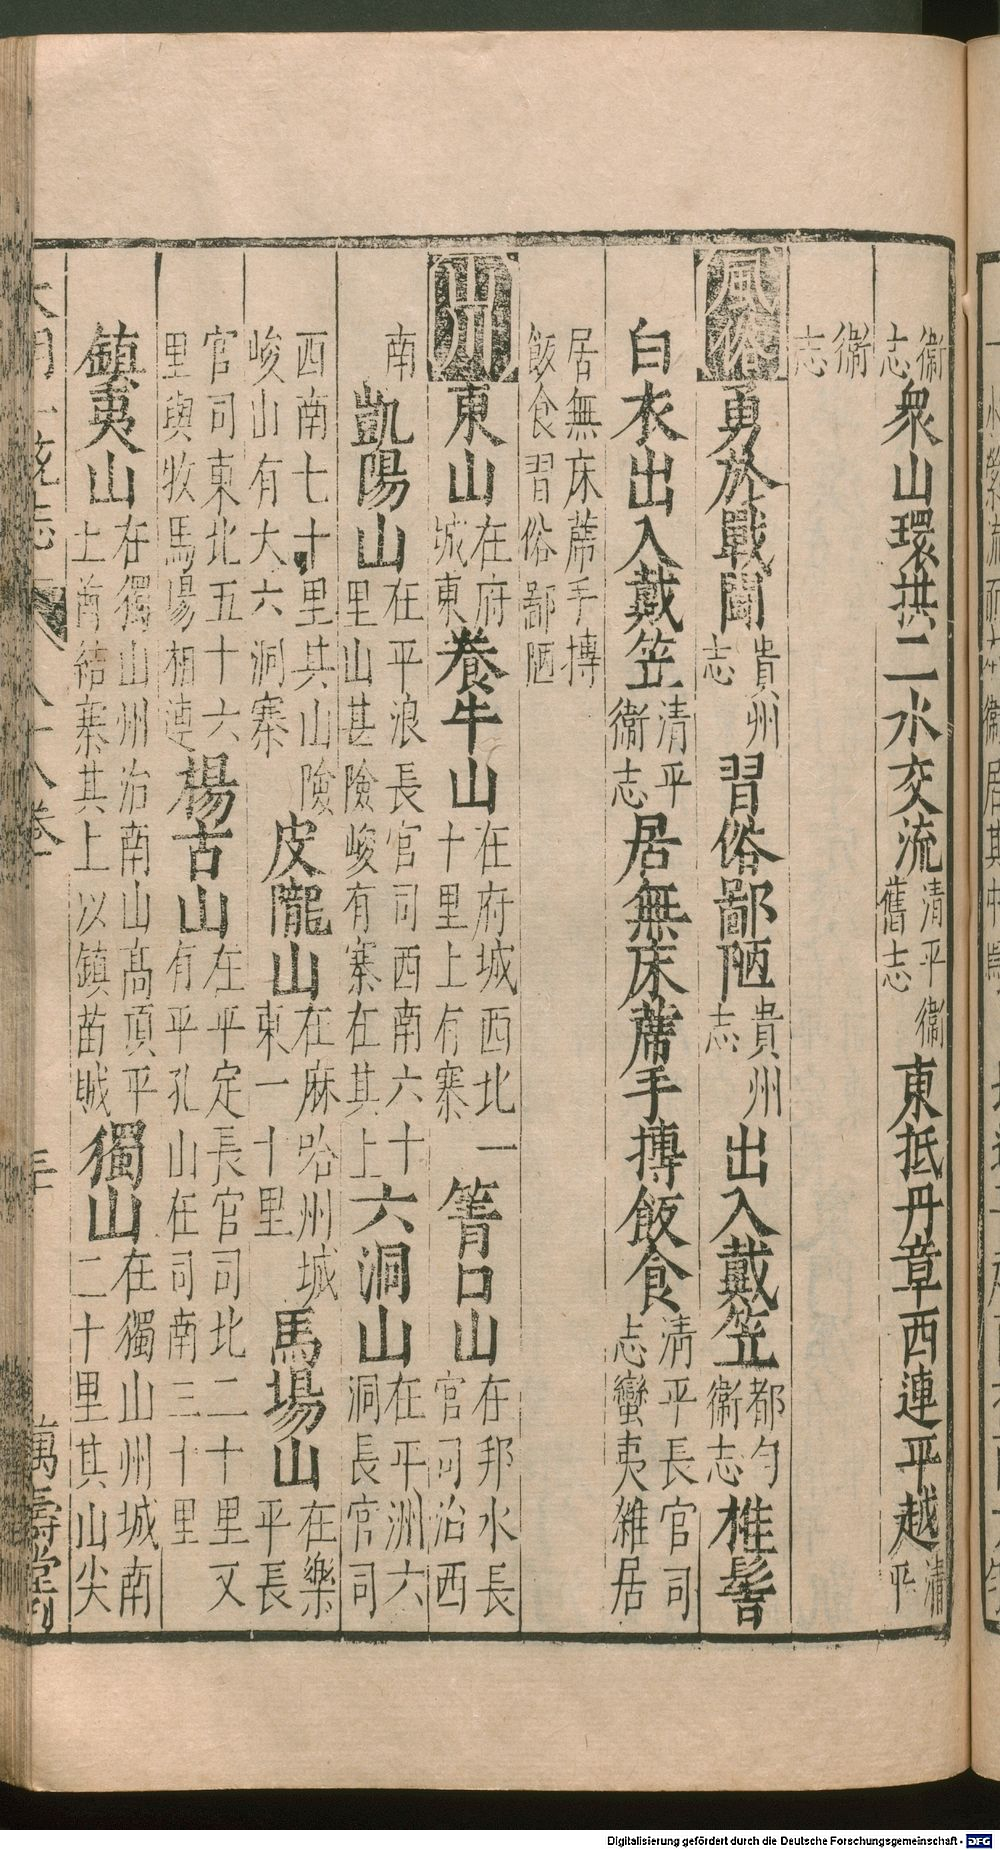 衞志衆山環拱二水交流清平衞舊志東抵丹章西連平越清平
衞志
風俗勇於戰鬬貴州志習俗鄙陋貴州志出入戴笠都勻衞志椎髻
白衣出入戴笠清平衞志居無床蓆手摶飯食清平長官司志蠻夷雜居
居無床蓆手摶飯食習俗鄙陋
山川東山在府城東養牛山在府城西北一十里上有寨箐口山在邦水長官司治西
南凱陽山在平浪長官司西南六十里山甚險峻有寨在其上六洞山在平洲六洞長官司
西南七十里其山險峻山有大六洞寨皮隴山在麻哈州城東一十里馬場山在樂平長
官司東北五十六里與牧馬場相連楊古山在平定長官司北二十里又有平孔山在司南三十里
鎮夷山在獨山州治南山高頂平上有結寨其上以鎮苗賊獨山在獨山州城南二十里其山尖
大明一統志 卷
萬壽堂刊
Digitalisierung gefördert durch die Deutsche Forschungsgemeinschaft - DFG